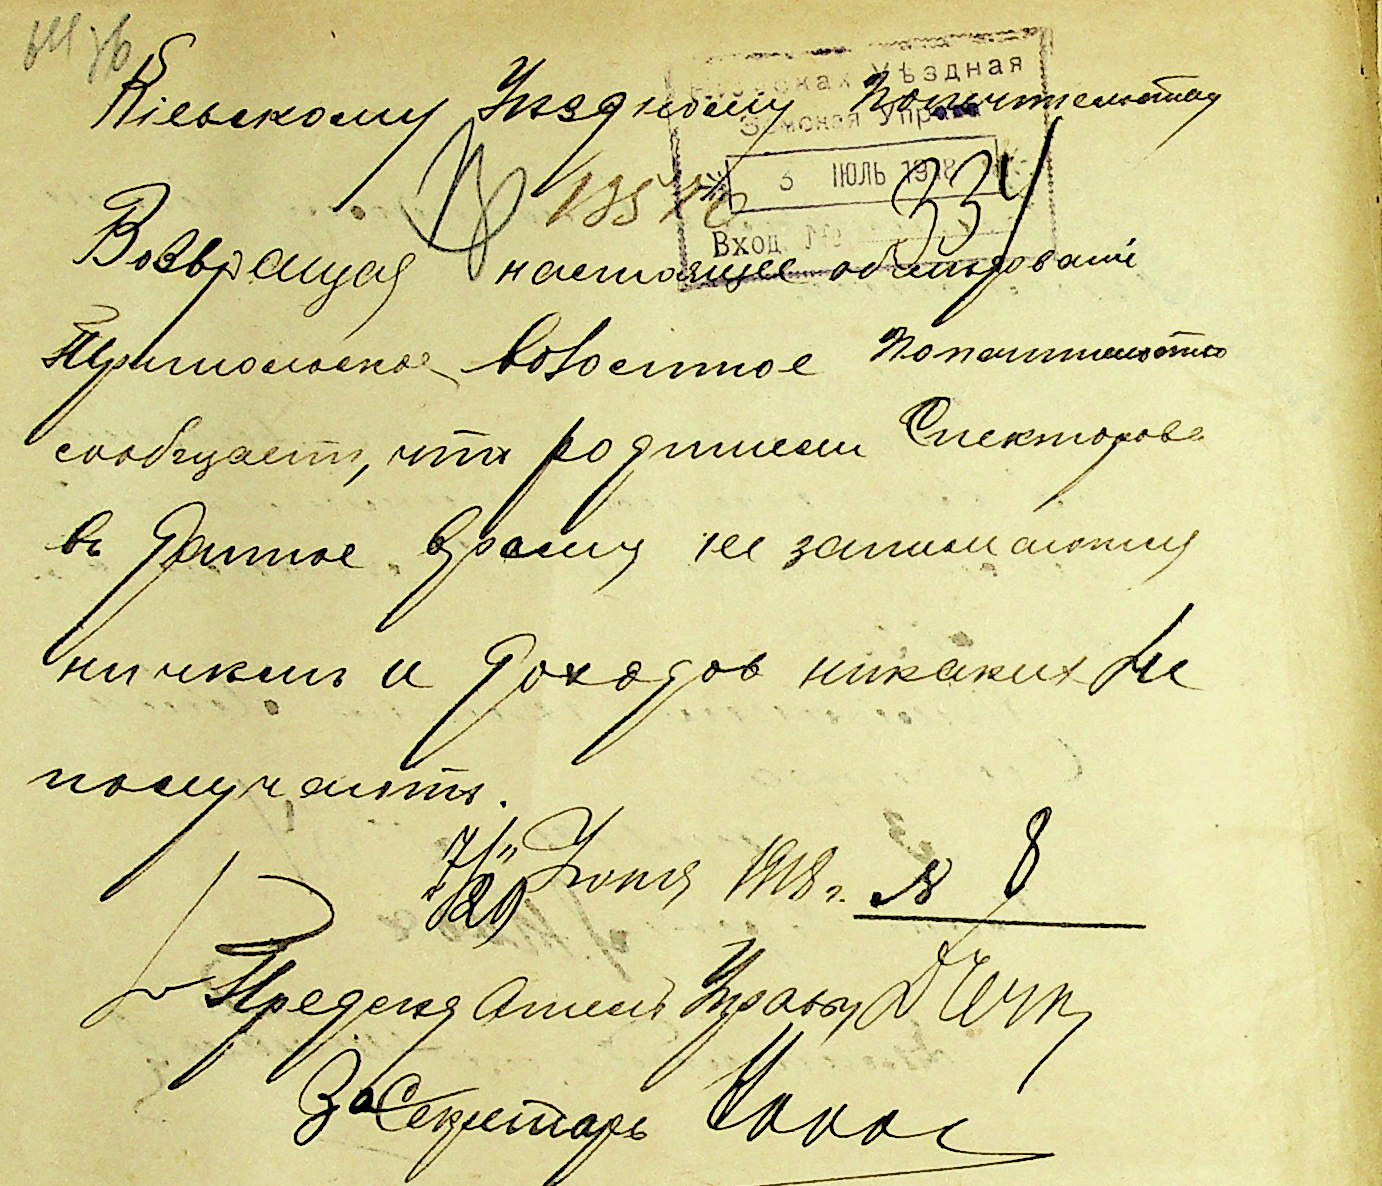 Кіевскому Уѣздному Попечительству
Уѣздная
Земская Управа
3 ІЮЛЬ 1918
334
Вход. №
Возвращая настоящее обследованіе
волостное попечительство
сообщаетъ, что родители Спекторовъ
въ данное время не занимаются
ничемъ и доходов никаких не
получаютъ.
"17/29" Іюня 1918 г. № 8
Председатель Управы
За Секретарь